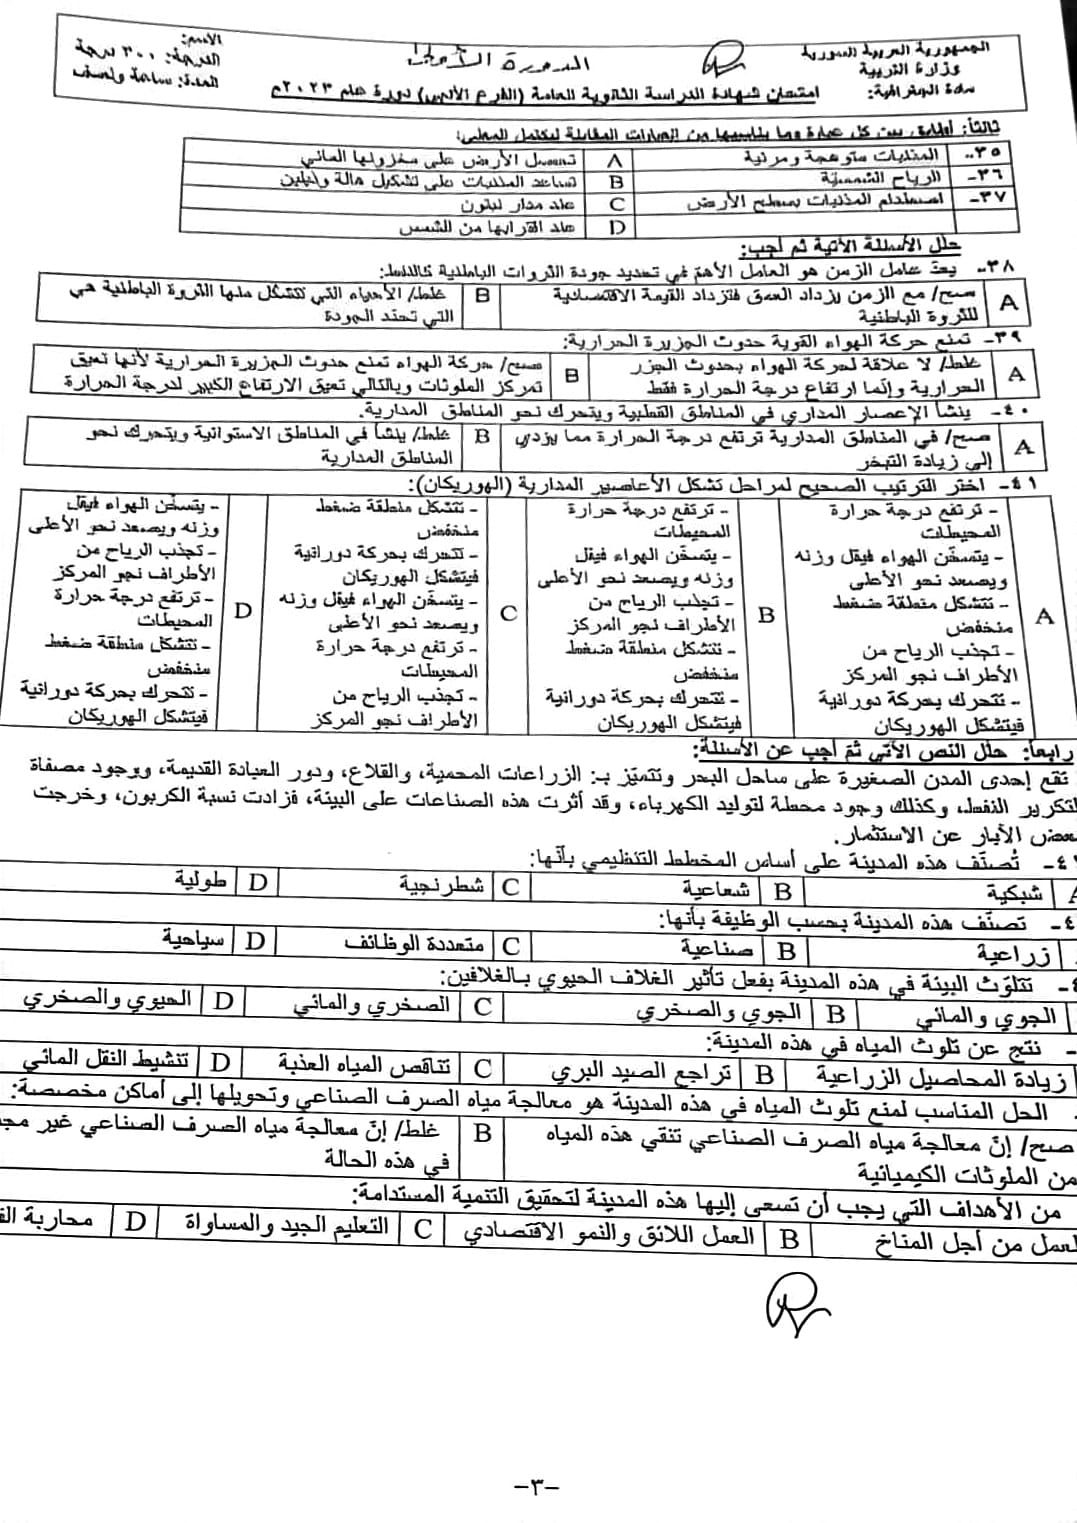 الجمهورية العربية السورية
وزارة التربية
مادة الجغرافية:
الدورة الأولى
امتحان شهادة الدراسة الثانوية العامة (الفرع الأدبي) دورة عام ٢٠٢٣م
الاسم:
الدرجة: ٣٠٠ درجة
المدة: ساعة ونصف
ثالثاً: بين كل عبارة وما يناسبها من العبارات المقابلة ليكتمل المعنى:
٣٥- المذنبات متوهجة ومرئية A تحصل الأرض على مخزونها المائي
٣٦- الرياح الشمسية B تساعد المذنبات على تشكيل هالة وذيلين
٣٧- اصطدام المذنبات بسطح الأرض C عند مدار نبتون
D عند اقترابها من الشمس
حلل الأسئلة الآتية ثم أجب:
٣٨- يعدّ عامل الزمن هو العامل الأهم في تحديد جودة الثروات الباطنية كالنفط:
A صح/ مع الزمن يزداد العمق فتزداد القيمة الاقتصادية للثروة الباطنية
B غلط/ الأحياء التي تتشكل منها الثروة الباطنية هي التي تحدد الجودة
٣٩- تمنع حركة الهواء القوية حدوث الجزيرة الحرارية:
A غلط/ لا علاقة لحركة الهواء بحدوث الجزر الحرارية وإنّما ارتفاع درجة الحرارة فقط
B صح/ حركة الهواء تمنع حدوث الجزيرة الحرارية لأنها تعيق تمركز الملوثات وبالتالي تعيق الارتفاع الكبير لدرجة الحرارة
٤٠- ينشأ الإعصار المداري في المناطق القطبية ويتحرك نحو المناطق المدارية.
A صح/ في المناطق المدارية ترتفع درجة الحرارة مما يؤدي إلى زيادة التبخر
B غلط/ ينشأ في المناطق الاستوائية ويتحرك نحو المناطق المدارية
٤١- اختر الترتيب الصحيح لمراحل تشكل الأعاصير المدارية (الهوريكان):
A
- ترتفع درجة حرارة المحيطات
- يتسخّن الهواء فيقل وزنه ويصعد نحو الأعلى
- تتشكل منطقة ضغط منخفض
- تجذب الرياح من الأطراف نجو المركز
- تتحرك بحركة دورانية فيتشكل الهوريكان
B
- ترتفع درجة حرارة المحيطات
- يتسخّن الهواء فيقل وزنه ويصعد نحو الأعلى
- تجذب الرياح من الأطراف نجو المركز
- تتشكل منطقة ضغط منخفض
- تتحرك بحركة دورانية فيتشكل الهوريكان
C
- تتشكل منطقة ضغط منخفض
- تتحرك بحركة دورانية فيتشكل الهوريكان
- يتسخّن الهواء فيقل وزنه ويصعد نحو الأعلى
- ترتفع درجة حرارة المحيطات
- تجذب الرياح من الأطراف نجو المركز
D
- يتسخّن الهواء فيقل وزنه ويصعد نحو الأعلى
- تجذب الرياح من الأطراف نجو المركز
- ترتفع درجة حرارة المحيطات
- تتشكل منطقة ضغط منخفض
- تتحرك بحركة دورانية فيتشكل الهوريكان
رابعاً: حلل النص الآتي ثمّ أجب عن الأسئلة:
تقع إحدى المدن الصغيرة على ساحل البحر وتتميّز بـ: الزراعات المحمية، والقلاع، ودور العبادة القديمة، ووجود مصفاة
لتكرير النفط، وكذلك وجود محطة لتوليد الكهرباء، وقد أثرت هذه الصناعات على البيئة، فزادت نسبة الكربون، وخرجت
بعض الآبار عن الاستثمار.
تُصنّف هذه المدينة على أساس المخطط التنظيمي بأنّها:
شبكية B شعاعية C شطرنجية D طولية
تصنّف هذه المدينة بحسب الوظيفة بأنها:
زراعية B صناعية C متعددة الوظائف D سياحية
تتلوّث البيئة في هذه المدينة بفعل تأثير الغلاف الحيوي بالغلافين:
الجوي والمائي B الجوي والصخري C الصخري والمائي D الحيوي والصخري
نتج عن تلوث المياه في هذه المدينة:
زيادة المحاصيل الزراعية B تراجع الصيد البري C تناقص المياه العذبة D تنشيط النقل المائي
الحل المناسب لمنع تلوث المياه في هذه المدينة هو معالجة مياه الصرف الصناعي وتحويلها إلى أماكن مخصصة:
صح/ إنّ معالجة مياه الصرف الصناعي تنقي هذه المياه من الملوثات الكيميائية
B غلط/ إنّ معالجة مياه الصرف الصناعي غير في هذه الحالة
من الأهداف التي يجب أن تسعى إليها هذه المدينة لتحقيق التنمية المستدامة:
العمل من أجل المناخ B العمل اللائق والنمو الاقتصادي C التعليم الجيد والمساواة D محاربة
-٣-